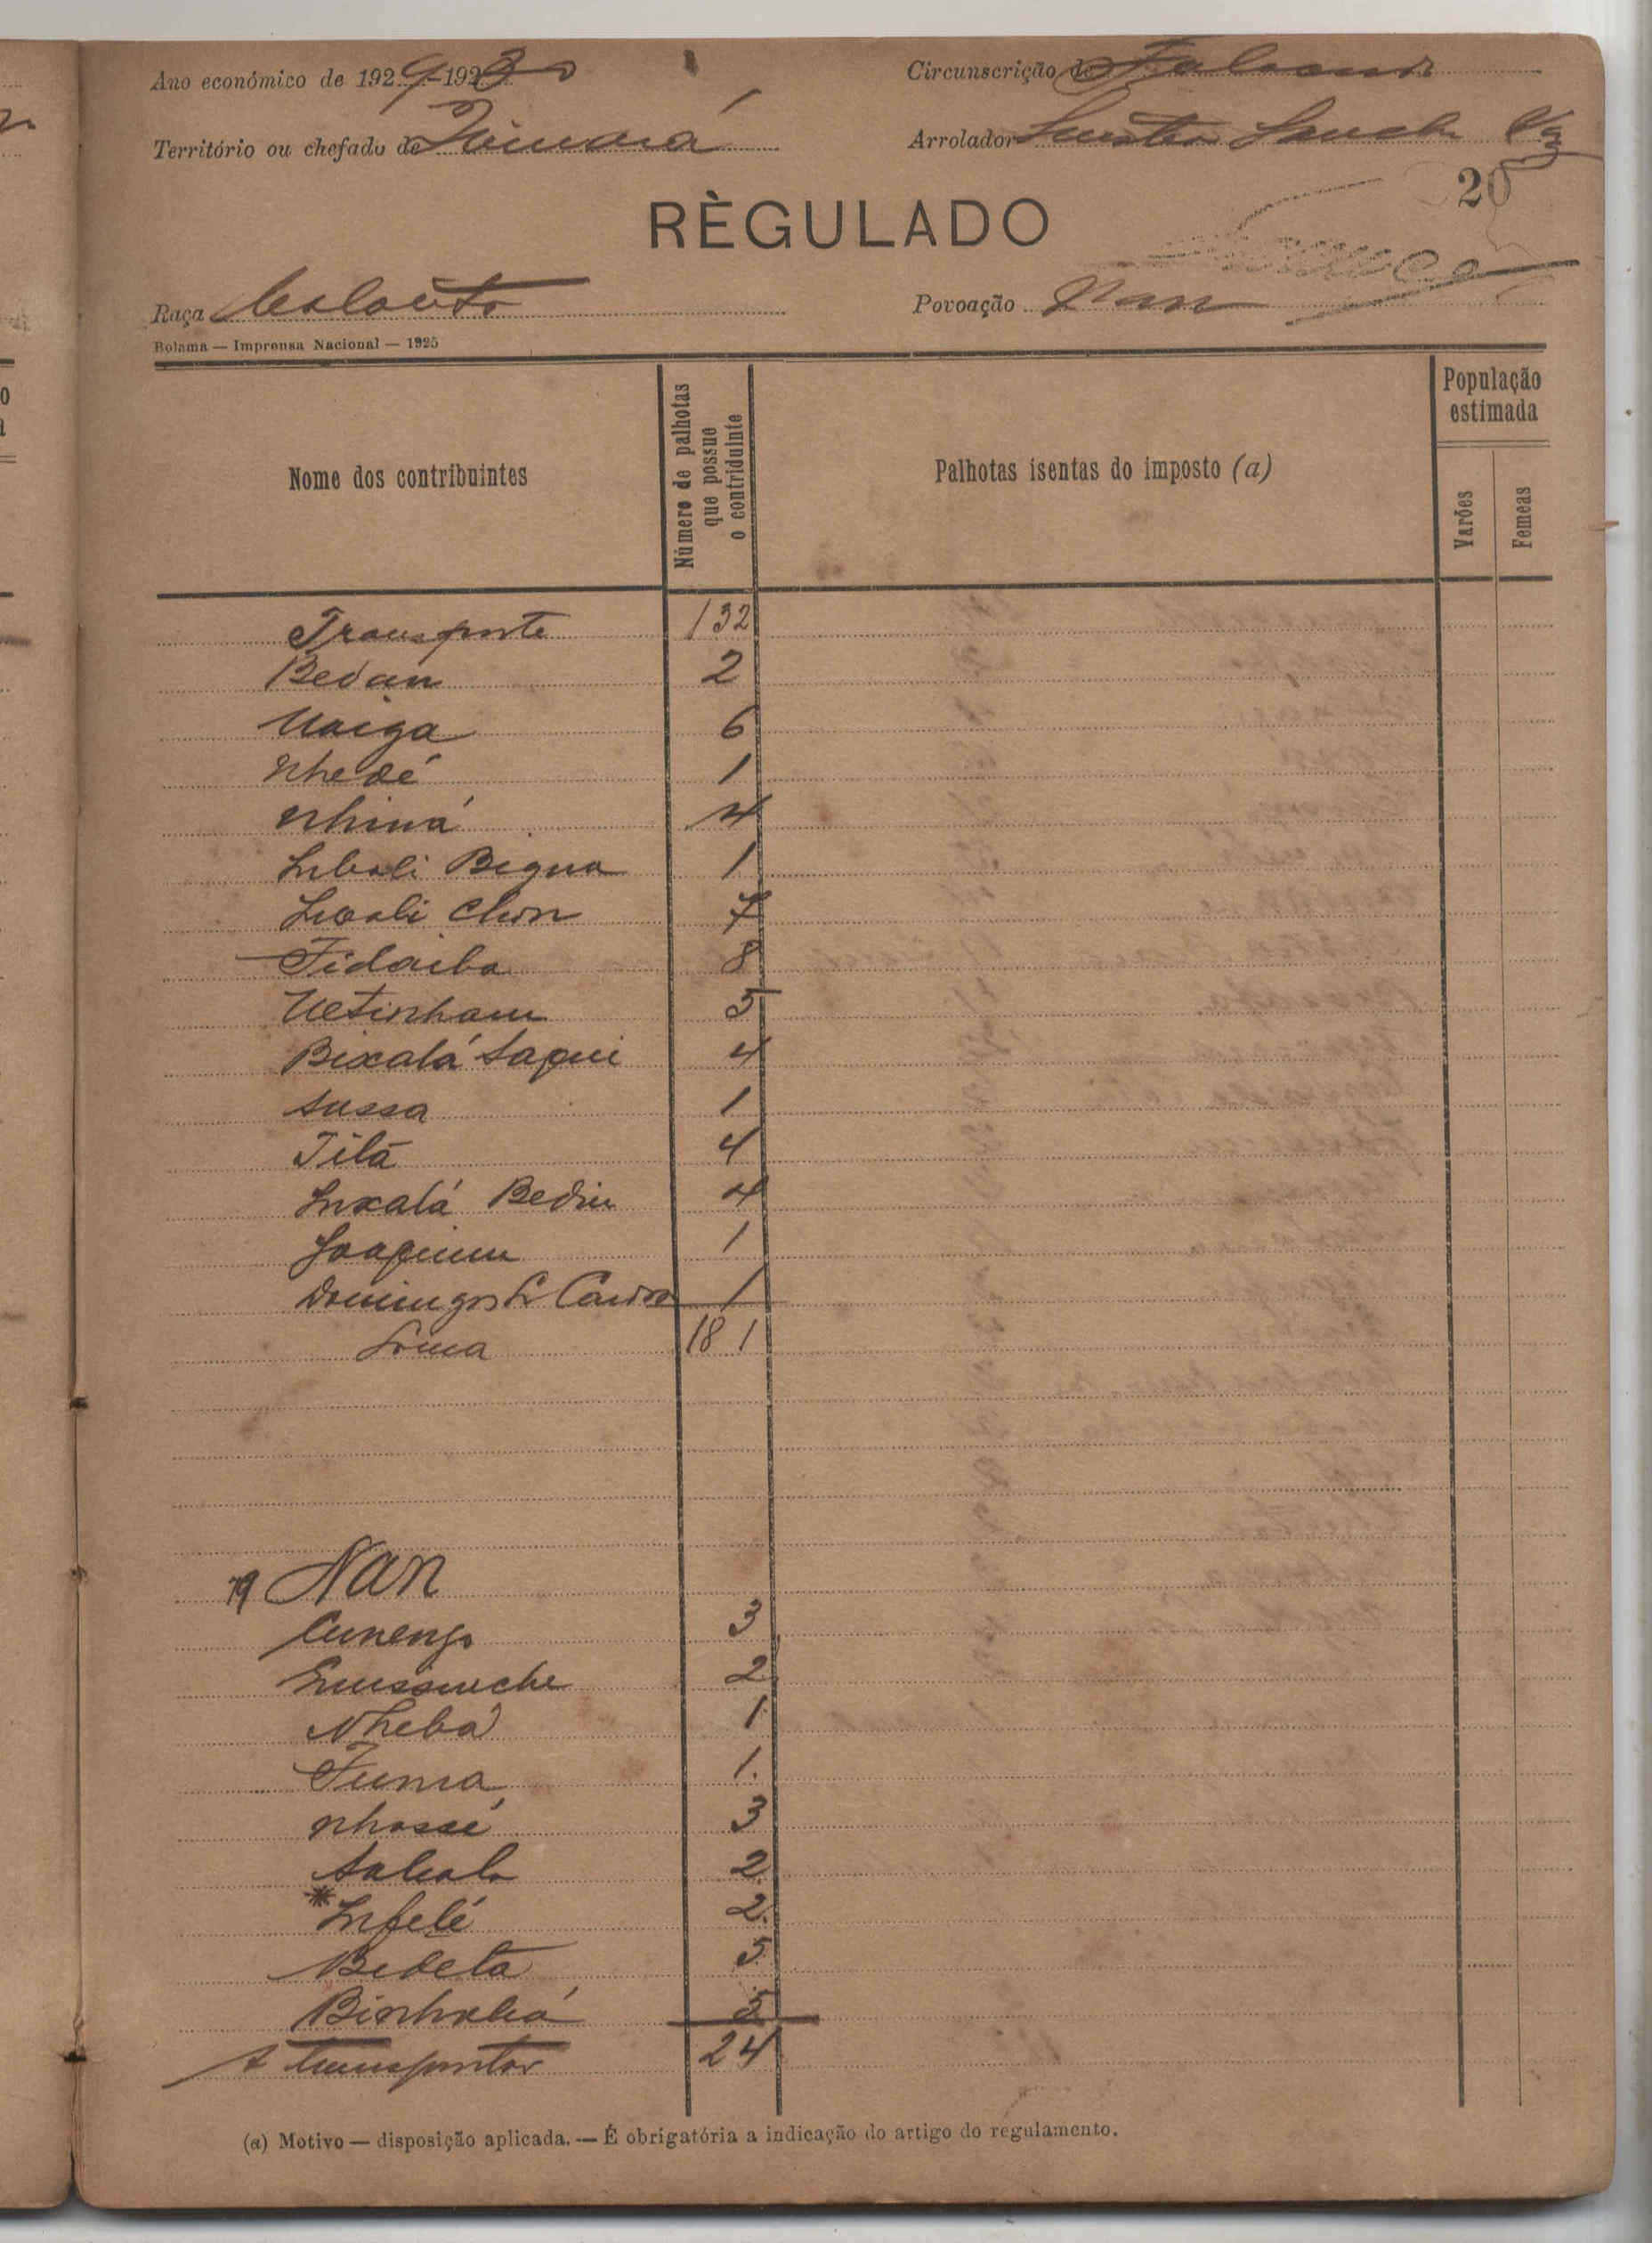 Ano económico de 1929-1930
Circunscrição de
Território ou chefado de
Arrolador
20
RÈGULADO
Raça
Povoação Nan
Bolama — Imprensa Nacional — 1925
Nome dos contribuintes
Número de palhotas que possue o contriduinte
Palhotas isentas do imposto (a)
População estimada
Varões
Femeas
Transporte 132
Bedan 2
Uaiga 6
Nhedé 1
Nhiná 4
Imbali Bigna 1
7
Fidaiba 8
Uetinham 5
Bixalá Saqui 4
Sussa 1
Tilá 4
Inxalá Bediu 4
Joaquim 1
Domingos 1
Soma 181
Nan
Cunengo 3
2
Nhebá 1
Funia 1.
Nhassé 3
2.
* Infelé 2.
Bedeta 5
5
A transportar 24
(a) Motivo — disposição aplicada. — É obrigatória a indicação do artigo do regulamento.